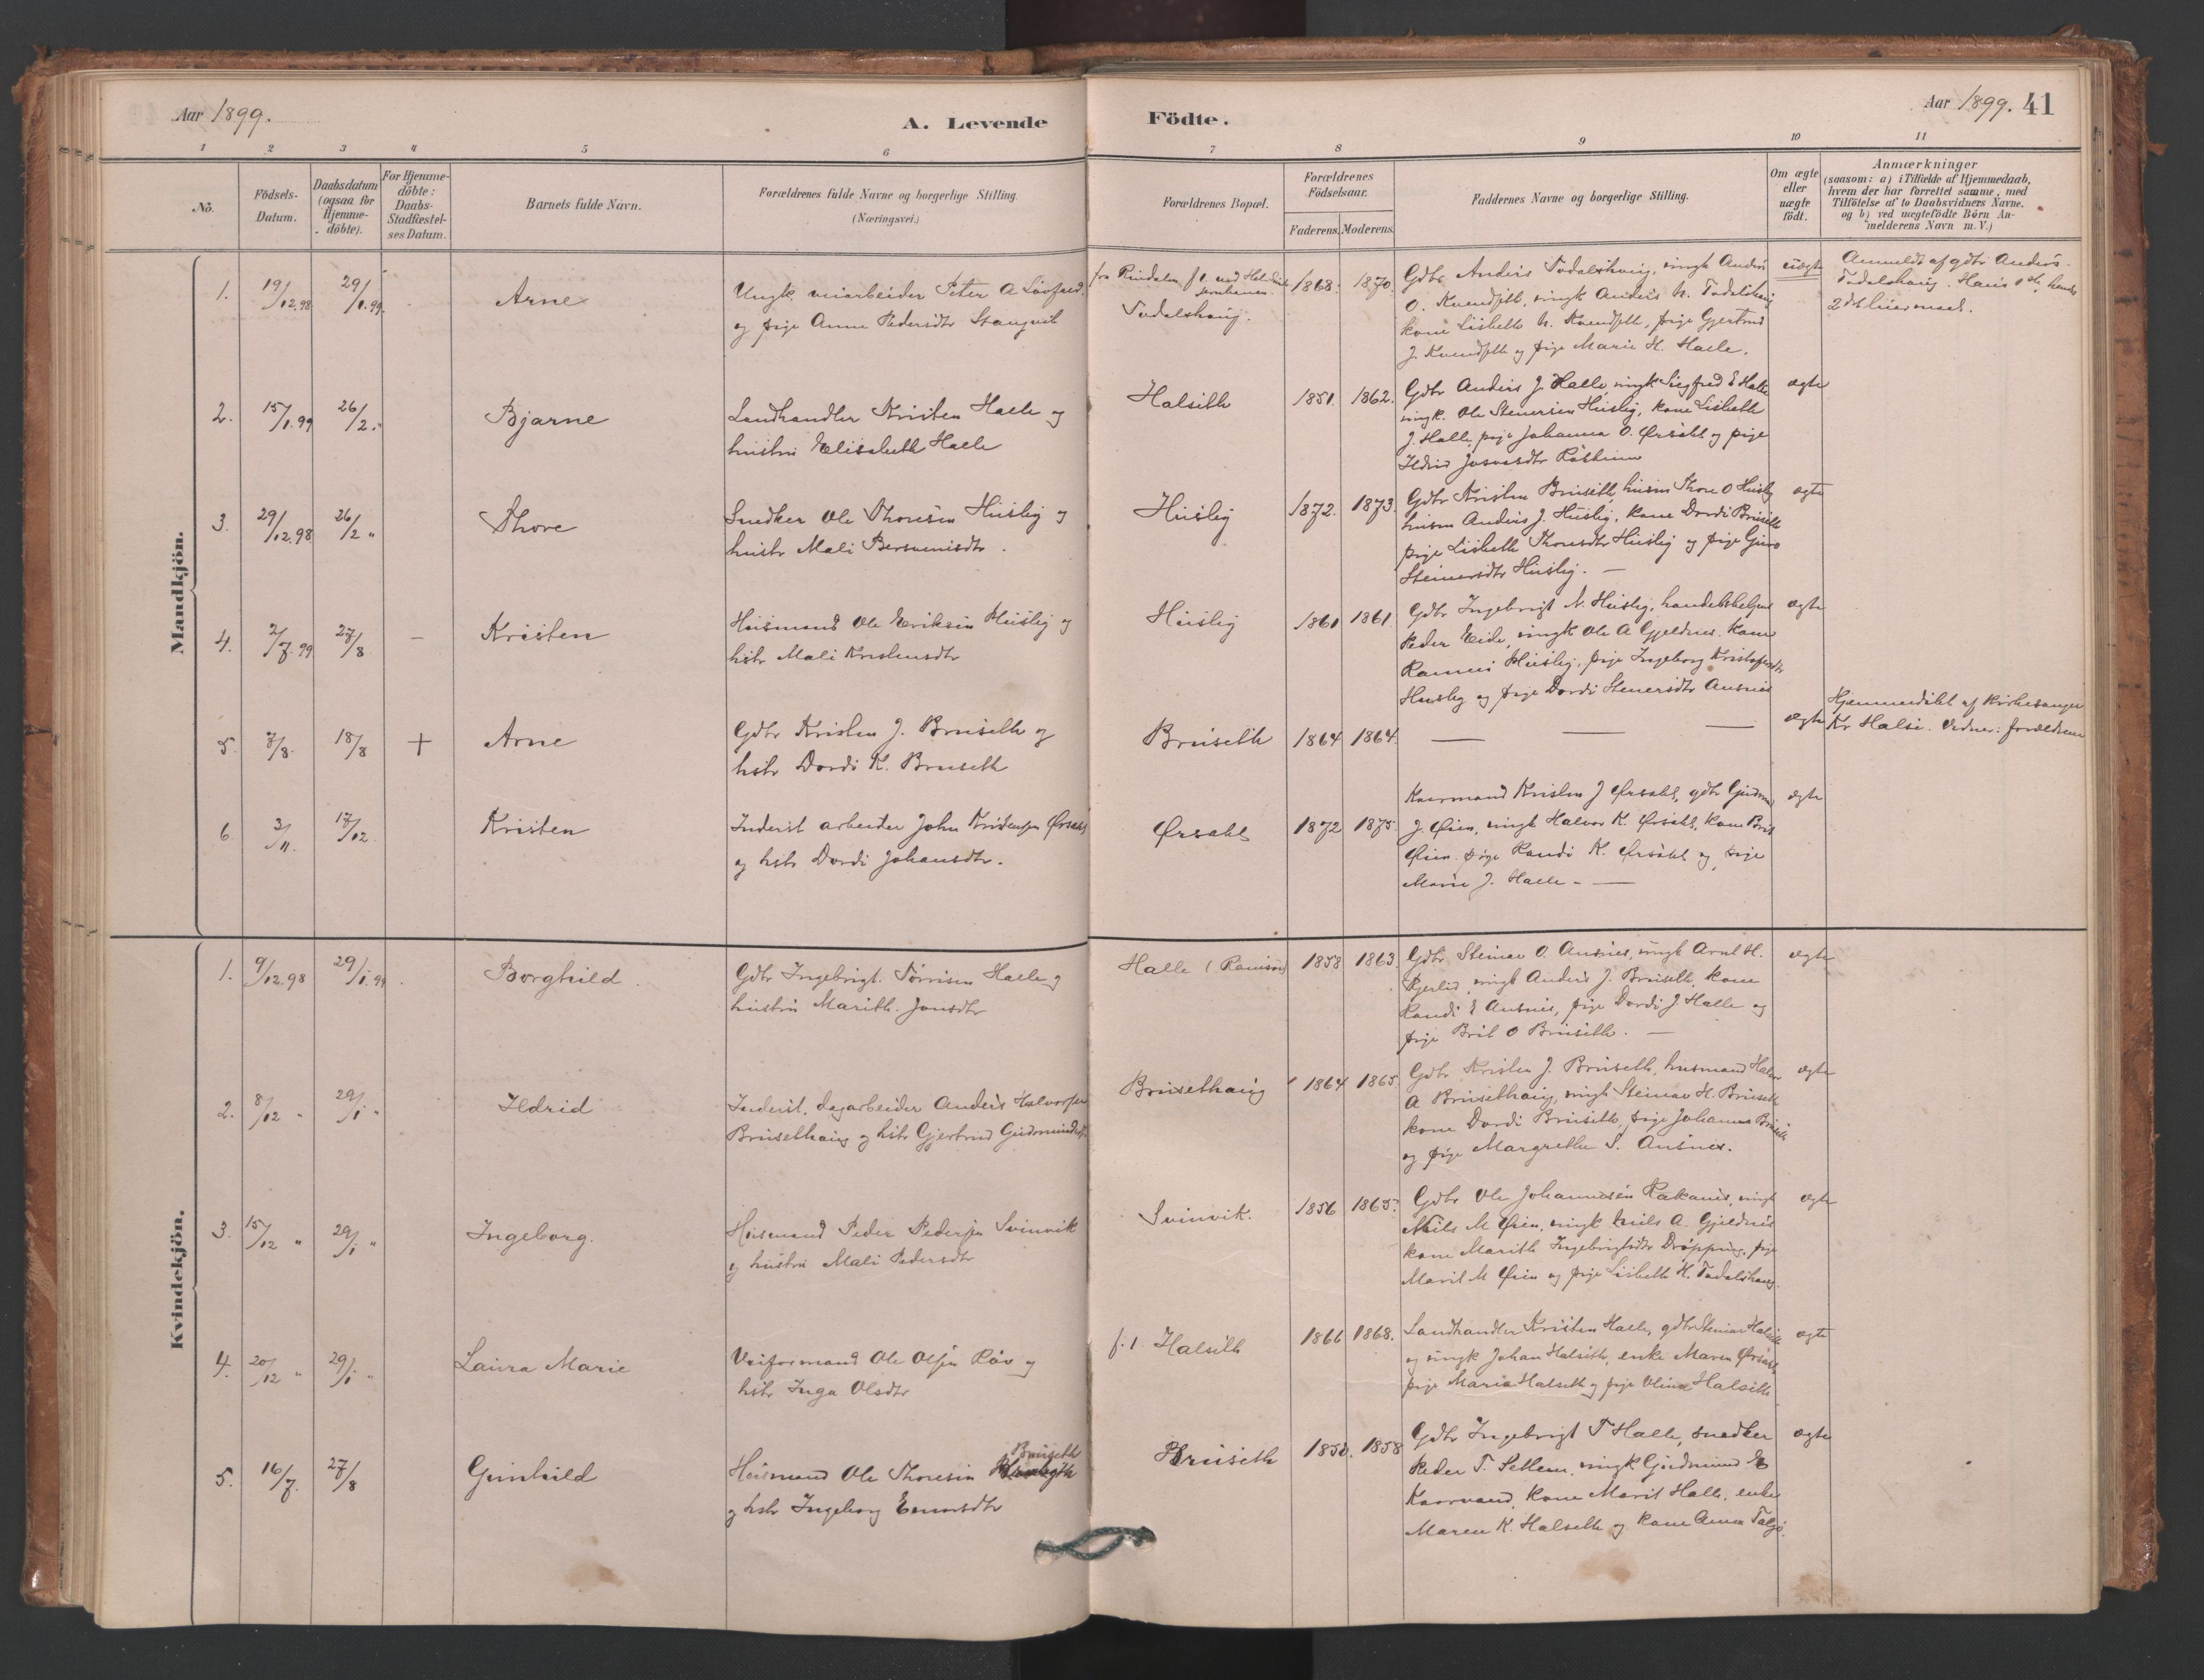 Aar 1899.
A. Levende
Födte.
Aar 1899. 41
1 2 3 4 5 6 7 8 9 10 11
No.
Födsels-
Datum.
Daabsdatum
(ogsaa for
Hjemme-
döbte).
For Hjemme-
döbte:
Daabs-
Stadfæstel-
ses Datum.
Barnets fulde Navn.
Forældrenes fulde Navne og borgerlige Stilling
(Næringsvei.)
Forældrenes Bopæl.
Forældrenes
Födselsaar.
Faderens. Moderens.
Faddernes Navne og borgerlige Stilling.
Om ægte
eller
uægte
födt.
Anmærkninger
(saasom: a) i Tilfælde af Hjemmedaab,
hvem der har forrettet samme, med
Tilföielse af to Daabsvidners Navne.
og b) ved uægtefödte Börn An-
melderens Navn m. V.)
Mandkjön.
1. 19/12.98 29/1.99. Arne
Ungk. veiarbeider Peter A
og pige Anne Pedersdtr Stangvik
fra Rindalen
Todalshaug.
1868. 1870.
Gdbr Anders Todalshaug, ungk Anders
O. Kvendseth, ungk Anders H. Todalshaug
kone Lisbeth H. Kvendseth, pige Gjertrud
J. Kvendseth og pige Marie H. Halle.
uægte
Anmeldt af gdbr Anders
Todalshaug. Hans 1ste, hendes
2det leiermaal.
2. 15/1.99 26/2. Bjarne
Landhandler Kristen Halle og
hustru Elisabeth Halle
Halseth
1851. 1862.
Gdbr Anders J. Halle, ungk Siegfred E Halle
ungk. Ole Steinersen Husby, kone Lisbeth
J. Halle, pige Johanna O. Ørsahl og pige
Ildrid
ægte
3. 29/12.98 26/2 " Thore
Snedker Ole Thoresen Husby og
hustr Mali
Husby
1872. 1873.
Gdbr Kristen Bruseth, husm Thore O Husby
husm Anders J. Husby, kone Dordi Bruseth
pige Lisbeth Thoresdtr Husby og pige Guro
Steinersdtr Husby. —
ægte
4. 2/7.99 27/8 – Kristen
Husmand Ole Eriksen Husby og
hstr Mali Kristensdtr
Husby
1861 1861.
Gdbr Ingebrigt N. Husby, handelsbetjent
Peder Eide, ungk Ole A Gjeldnes. kone
Husby, pige Ingeborg Kristofersdtr
Husby og pige Dordi Steinersdtr Ausnes
ægte
5. 7/8. 18/8 + Arne
Gdbr Kristen J. Bruseth og
hstr Dordi K. Bruseth
Bruseth
1864 1864.
— — —
ægte
Hjemmedöbt af Kirkesanger
Kr Halse. Vidner: forældrene
6. 3/11. 17/12. Kristen
Inderst arbeider John Kristensen Ørsahl
og hstr Dordi Johansdtr.
Ørsahl
1872 1875.
Kaarmand Kristen J Ørsahl, gdbr Gudmund
J. Øien, ungk Halvor K. Ørsahl, kone Berit
Øien. pige Randi K. Ørsahl og pige
Marie J. Halle. —
ægte
Kvindekjön.
1. 9/12.98 29/1.99. Borghild.
Gdbr Ingebrigt Törrisen Halle og
hustru Marith. Jonsdtr
Halle
1858 1863.
Gdbr Steinar O. Ausnes, ungk Arnt H.
Kjerlid, ungk Anders J. Bruseth, kone
Randi E Ausnes, pige Dordi J. Halle og
pige Brit O Bruseth. —
ægte
2. 8/12 " 29/1 " Ildrid
Inderst, dagarbeider Anders Halvorsen
Brusethaug og hstr Gjertrud Gudmundsdtr
Brusethaug
1864 1865.
Gdbr Kristen J. Bruseth, husmand Halvor
A Brusethaug, ungk Steinar H. Bruseth
kone Dordi Bruseth, pige Johanna Bruseth
og pige Margrethe S. Ausnes.
ægte
3. 15/12 " 29/1 " Ingeborg.
Husmand Peder Pedersen Svinvik
og hustru Mali Pedersdtr
Svinvik.
1856 1865.
Gdbr Ole Johannesen Rakanes, ungk
Nils M Øien, ungk Nils A. Gjeldnes
kone Marith Ingebrigtsdtr Dröpping, pige
Marit M Øien og pige Lisbeth H. Todalshaug.
ægte
4. 20/12 " 29/1 " Laura Marie
Veiformand Ole Olsen Röv og
hstr Inga Olsdtr
f. t. Halseth
1866 1868.
Landhandler Kristen Halle, gdbr Steinar Halseth
og ungk Johan Halseth, enke Maren Ørsahl,
pige Maria Halseth og pige Olina Halseth
ægte
5. 16/7. 27/8 Gunhild
Bruseth
Husmand Ole Thoresen
og hstr Ingeborg Einarsdtr
Bruseth
1850. 1858
Gdbr Ingebrigt T Halle, snedker
Peder T. Settem, ungk Gudmund E
Kaarvand, kone Marit Halle, enke
Maren K. Halseth og kone Anne Talgö.
ægte